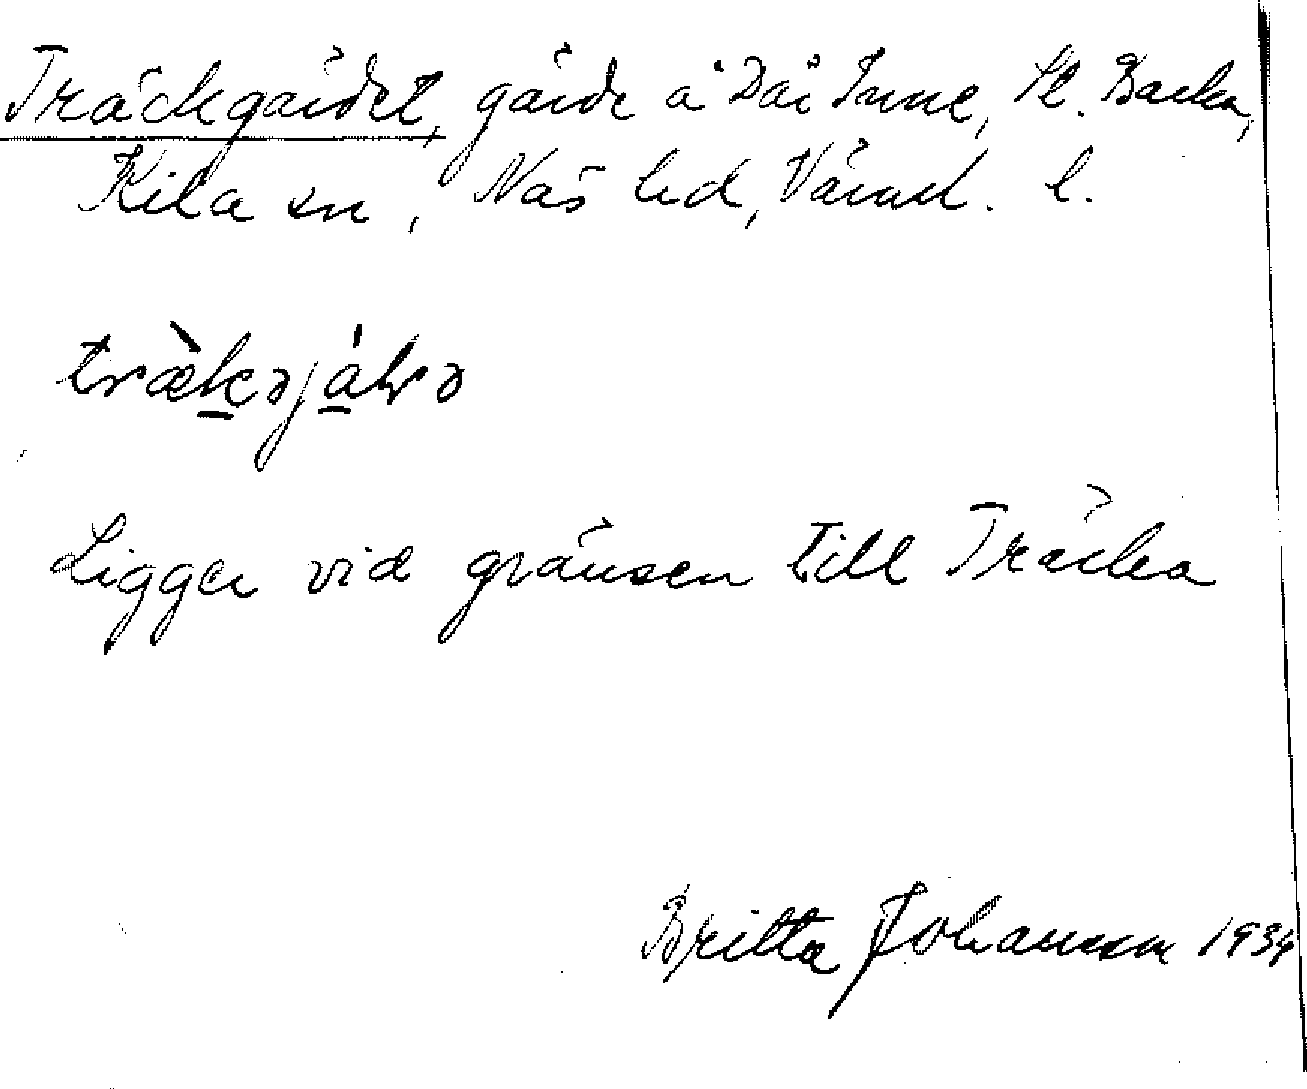 Träckgärdet, gärde å Där Inne, St. Backa,
Kila sn, Näs hd, Värml. l.
træ̀kəjálrə
Ligger vid gränsen till Träcka
Britta Johansson 1934